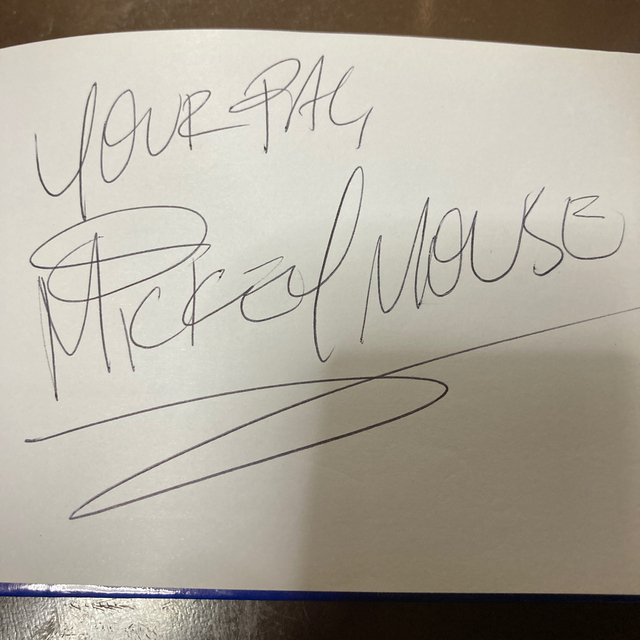 YOUR PAL,
MICKEY MOUSE